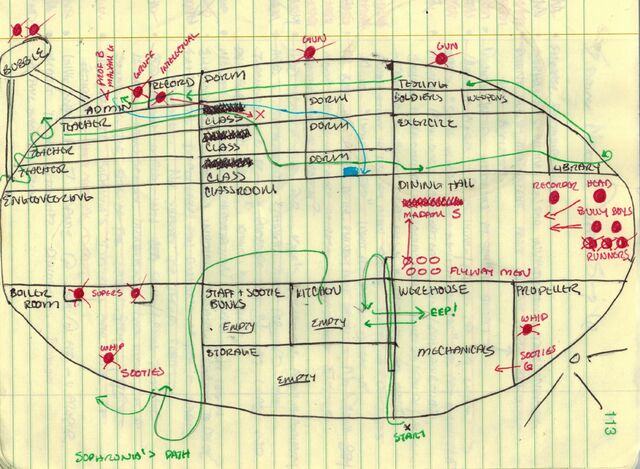 BUBBLE
PROF B
MADAM G
GRUFF
INTELLECTUAL
GUN
GUN
ADMIN
RECORD
DORM
TESTING
SOLDIERS
WEAPONS
TEACHER
CLASS
DORM
X
EXERCIZE
TEACHER
CLASS
DORM
TEACHER
CLASS
DORM
LIBRARY
ENGINEERING
CLASSROOM
DINING HALL
MADAM S
RECORDER
HEAD
BULLY BOYS
RUNNERS
FLYWAY MEN
BOILER
ROOM
SUPERS
STAFF + SOOTIE
BUNKS
EMPTY
KITCHEN
EMPTY
WAREHOUSE
EEP!
MECHANICALS
PROPELLER
WHIP
SOOTIES
6
WHIP
SOOTIES
STORAGE
EMPTY
X
START
SOPHRONIA'S PATH
113